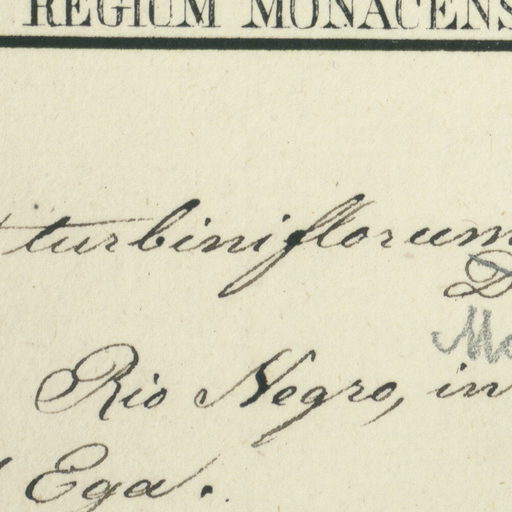 REGIUM MONACENS
turbiniflorum
D
Rio Negro, in
Ega.